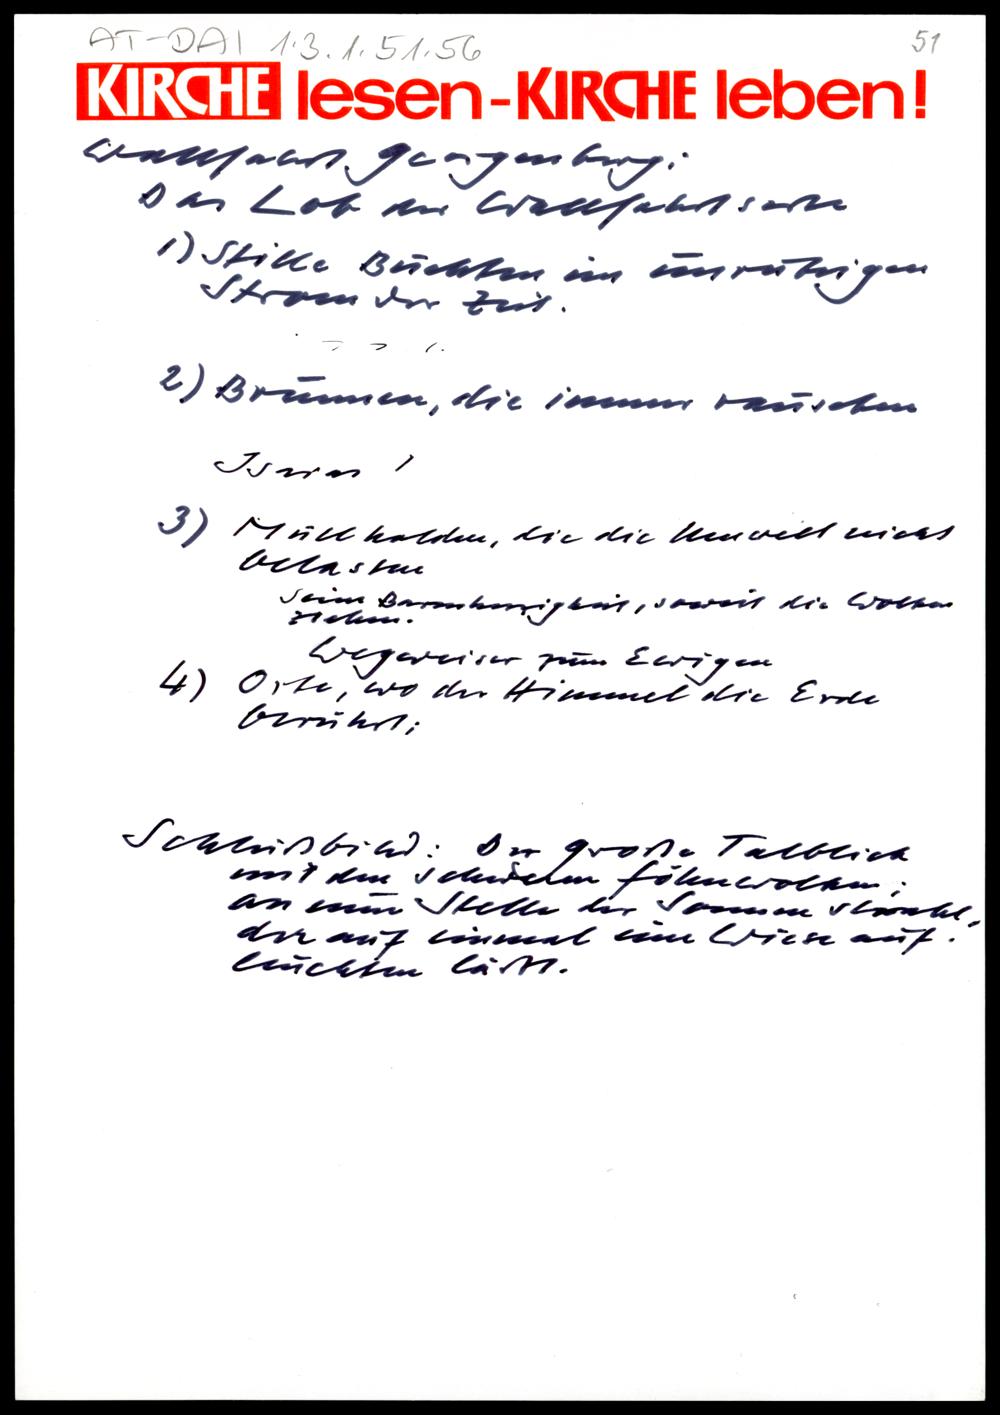 AT-DAI 1.3.1.51.56
51
KIRCHE lesen-KIRCHE leben!
Wallfahrt Georgenberg:
Das Lob der Wallfahrtsorte
1) Stille Buchten im unruhigen
Strom der Zeit.
2) Brunnen, die immer rauschen
Isaias
3) Müllhalden, die die Umwelt nicht
belasten
Seine Barmherzigkeit, soweit die Wolken
ziehen.
Wegweiser zum Ewigen
4) Orte, wo der Himmel die Erde
berührt;
Schlußbild: Der große Talblick
mit den schweren Föhnwolken;
an einer Stelle der Sonnenstrahl,
der auf einmal eine Wiese auf-
leuchten läßt.